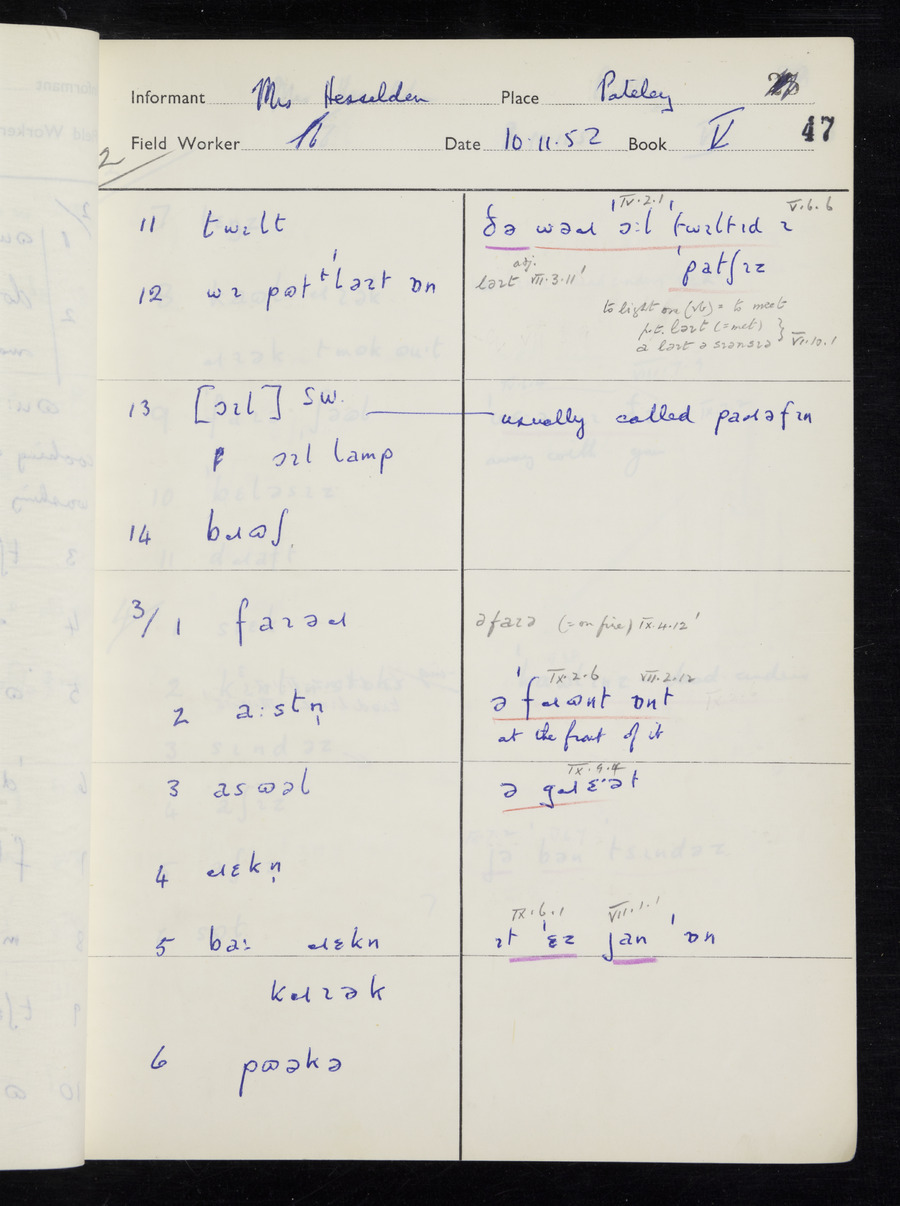 Informant Mrs Hesselden Place Pateley
47
Field Worker Date 10.11.52 Book V
2/
11 twɪlt
ðə wəɹ ˈɔːl ˈtwɪltɪd ɪ
IV.2.1 V.6.6
ˈpatʃɪz
12 wɪ pʊt tˈləɪt ɒn
adj. ləɪt VII.3.11
to light on (vb) = to meet
p.t. ləɪt (= met)
VI.10.1
13 [ɔɪl] S.W. usually called paɹəfɪn
ɔɪl lamp
14 bɹʊʃ
3/ 1 faɪəɹ
əfaɪə (= on fire) IX.4.12
2 aːstn̩
IX.2.6 VII.2.12
ə ˈfɹʊnt ɒnt
at the front of it
3 asʊəl
IX.9.4
ə gɹɛˑət
4 ɹɛkn̩
5 baː ɹɛkn
IX.6.1 VII.1.1
ɪt ˈɛz jan ˈɒn
kɹɪək
6 pʊəkə